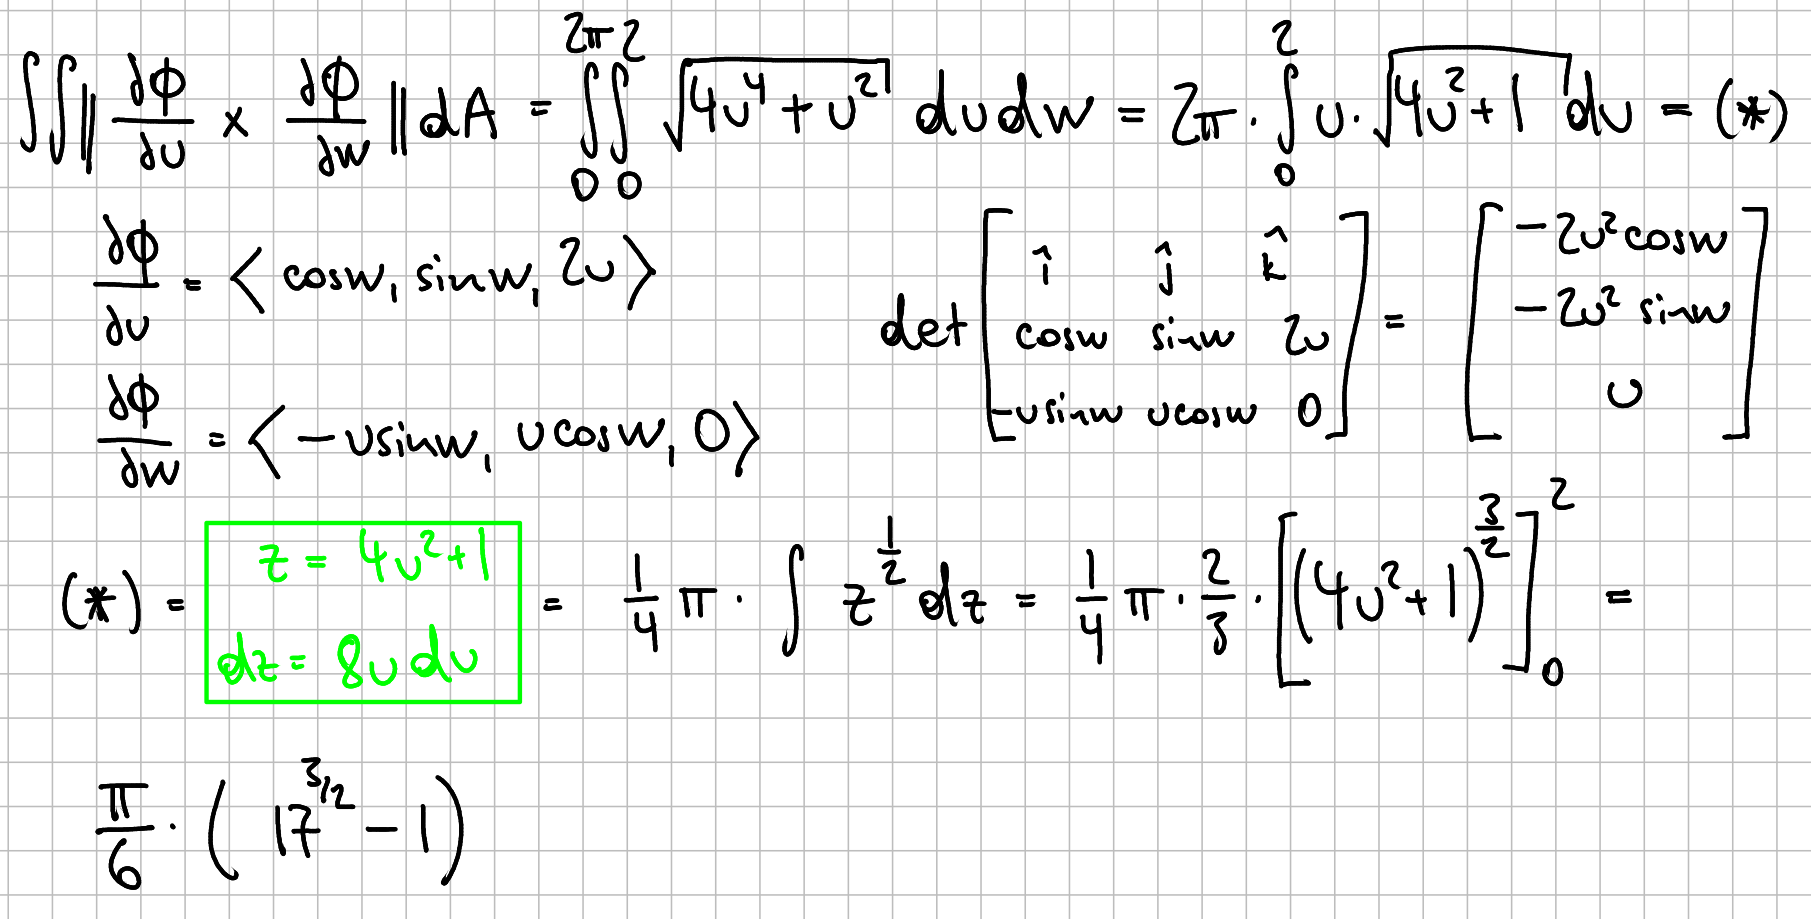 ∫∫ ‖ ∂ϕ/∂u × ∂ϕ/∂w ‖ dA = ∫₀^{2π} ∫₀^{2} √(4u⁴ + u²) du dw = 2π · ∫₀^{2} u · √(4u² + 1) du = (*)
∂ϕ/∂u = ⟨ cosw, sinw, 2u ⟩
∂ϕ/∂w = ⟨ -usinw, ucosw, 0 ⟩
det [ î ĵ k̂ ; cosw sinw 2u ; -usinw ucosw 0 ] = [ -2u²cosw ; -2u² sinw ; u ]
(*) = [ z = 4u²+1 ; dz = 8u du ] = 1/4 π · ∫ z^{1/2} dz = 1/4 π · 2/3 · [ (4u²+1)^{3/2} ]₀^{2} =
π/6 · ( 17^{3/2} - 1 )